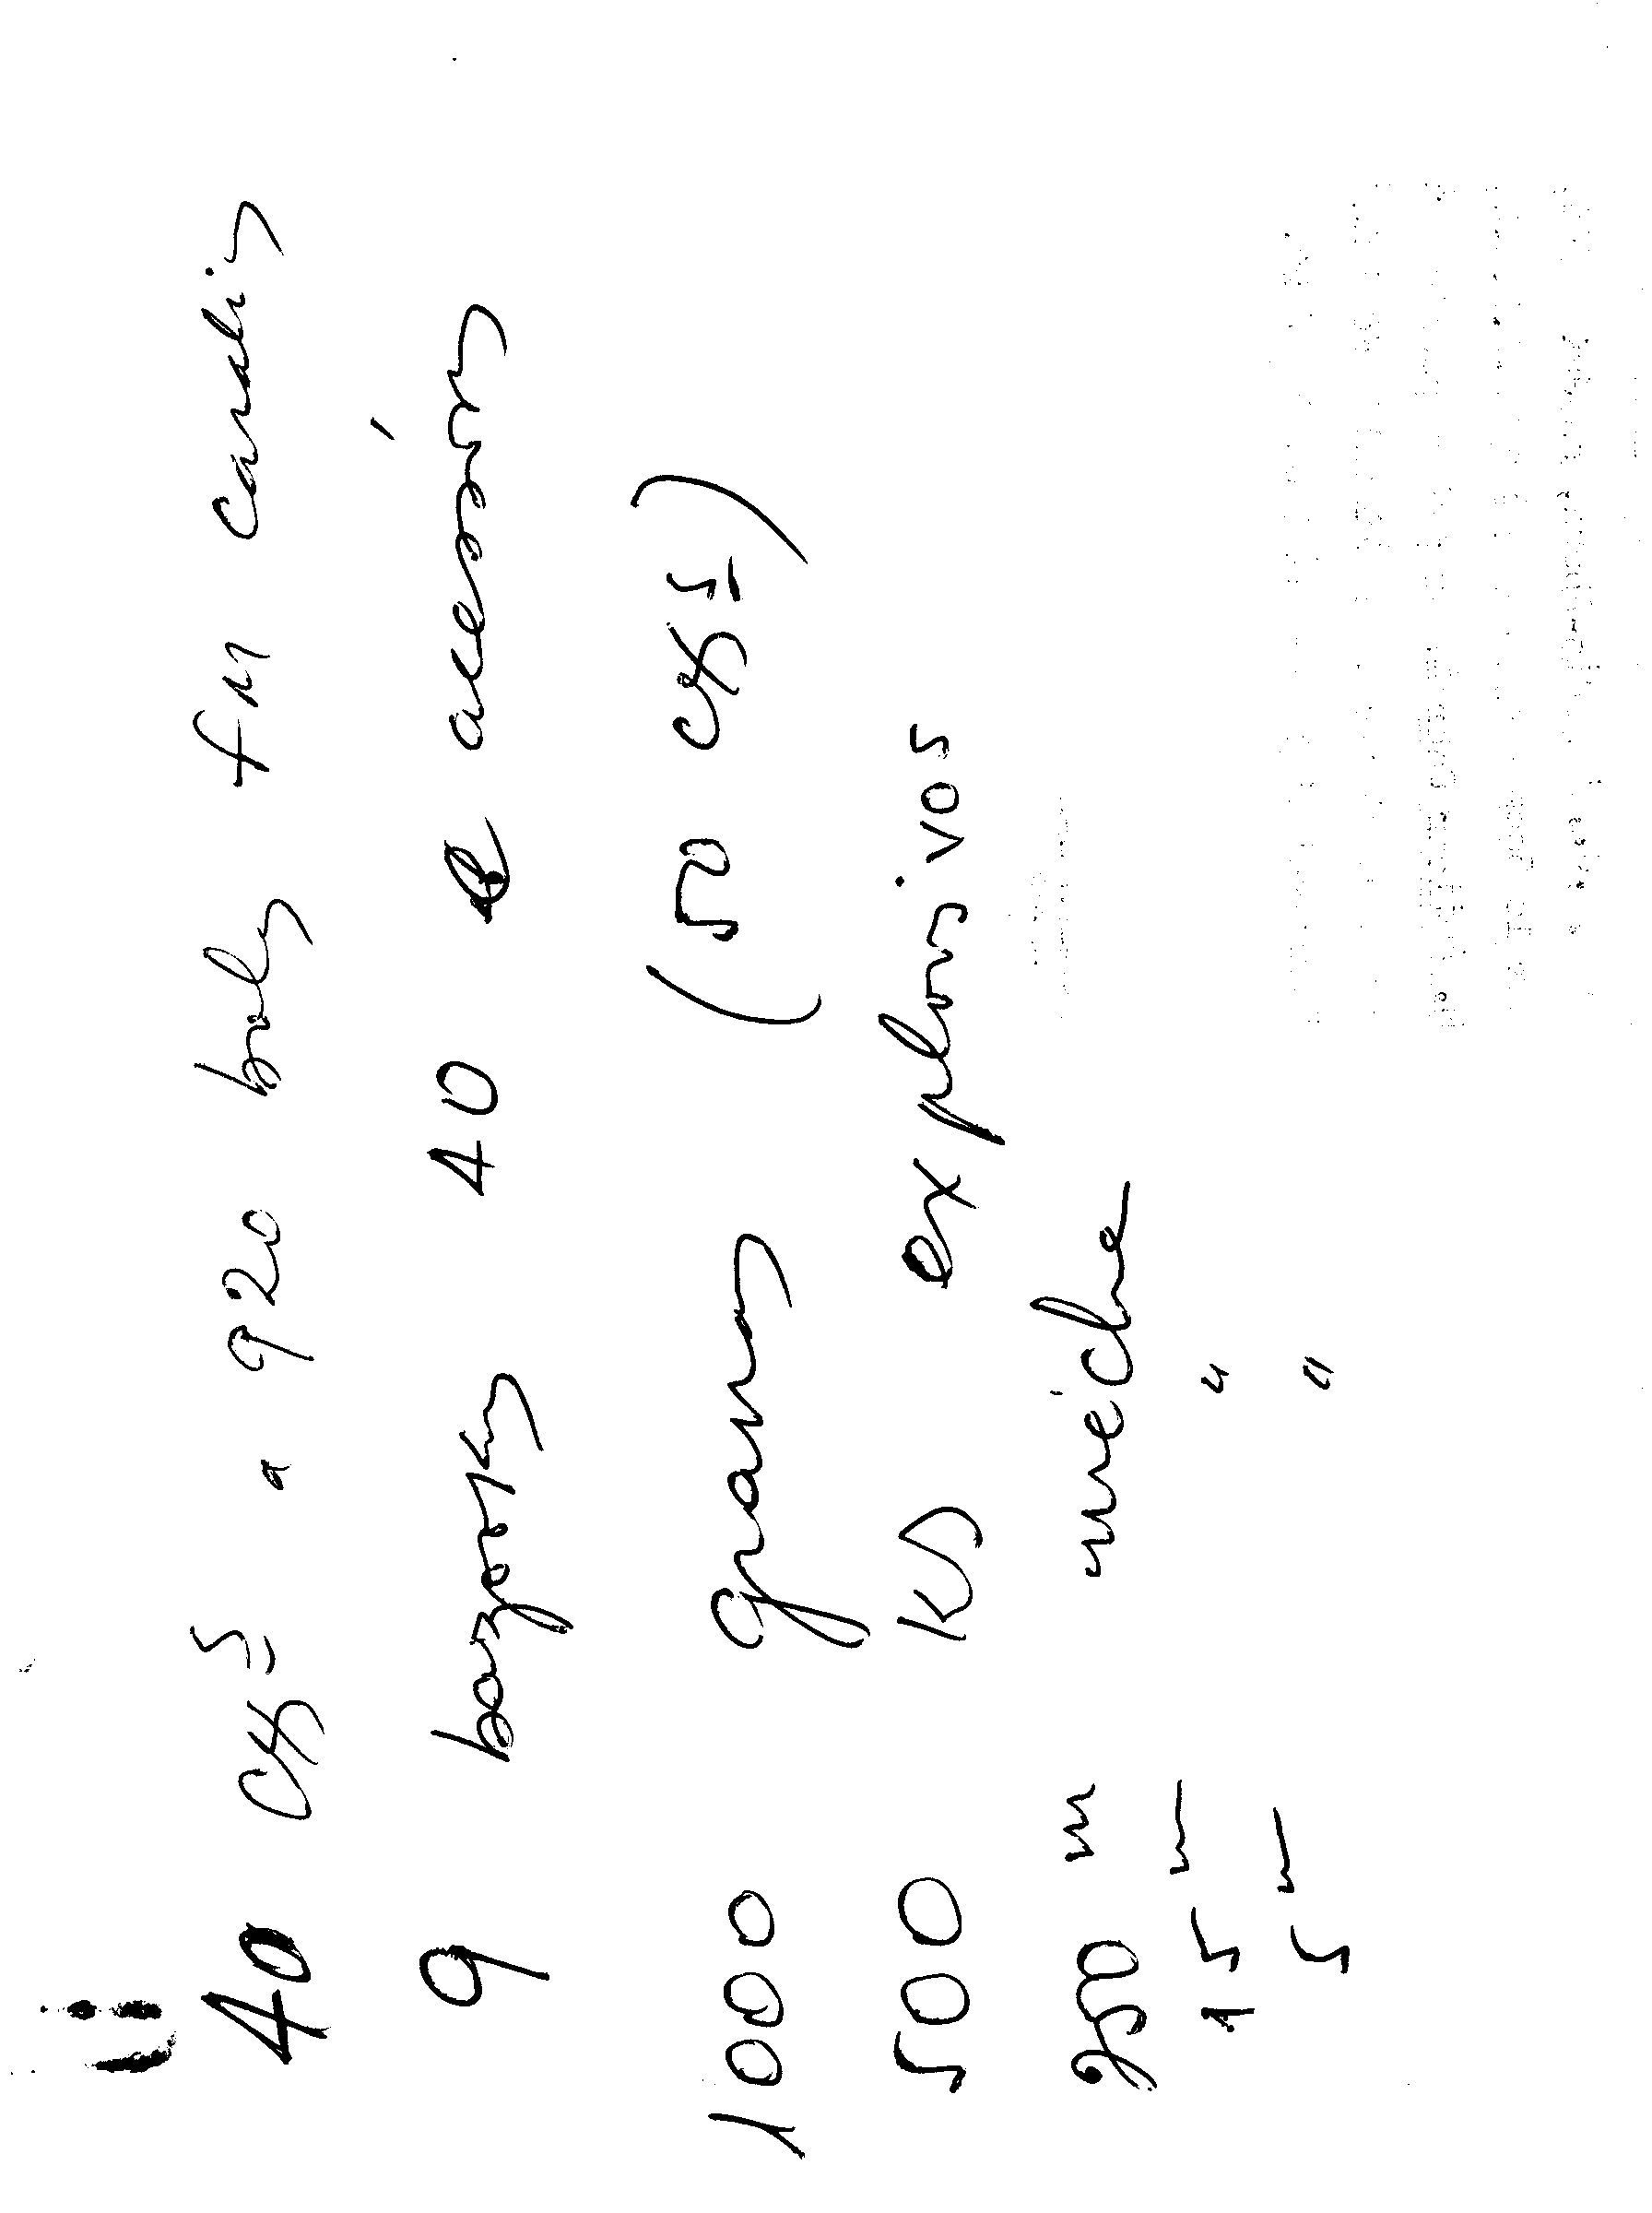 40 cxs a 920 balas fm canalis
9 bazookas 40 e acesórios
1000 granas (50 cxs)
500 Ks explosivos
250 m méche
15 m "
5 m "